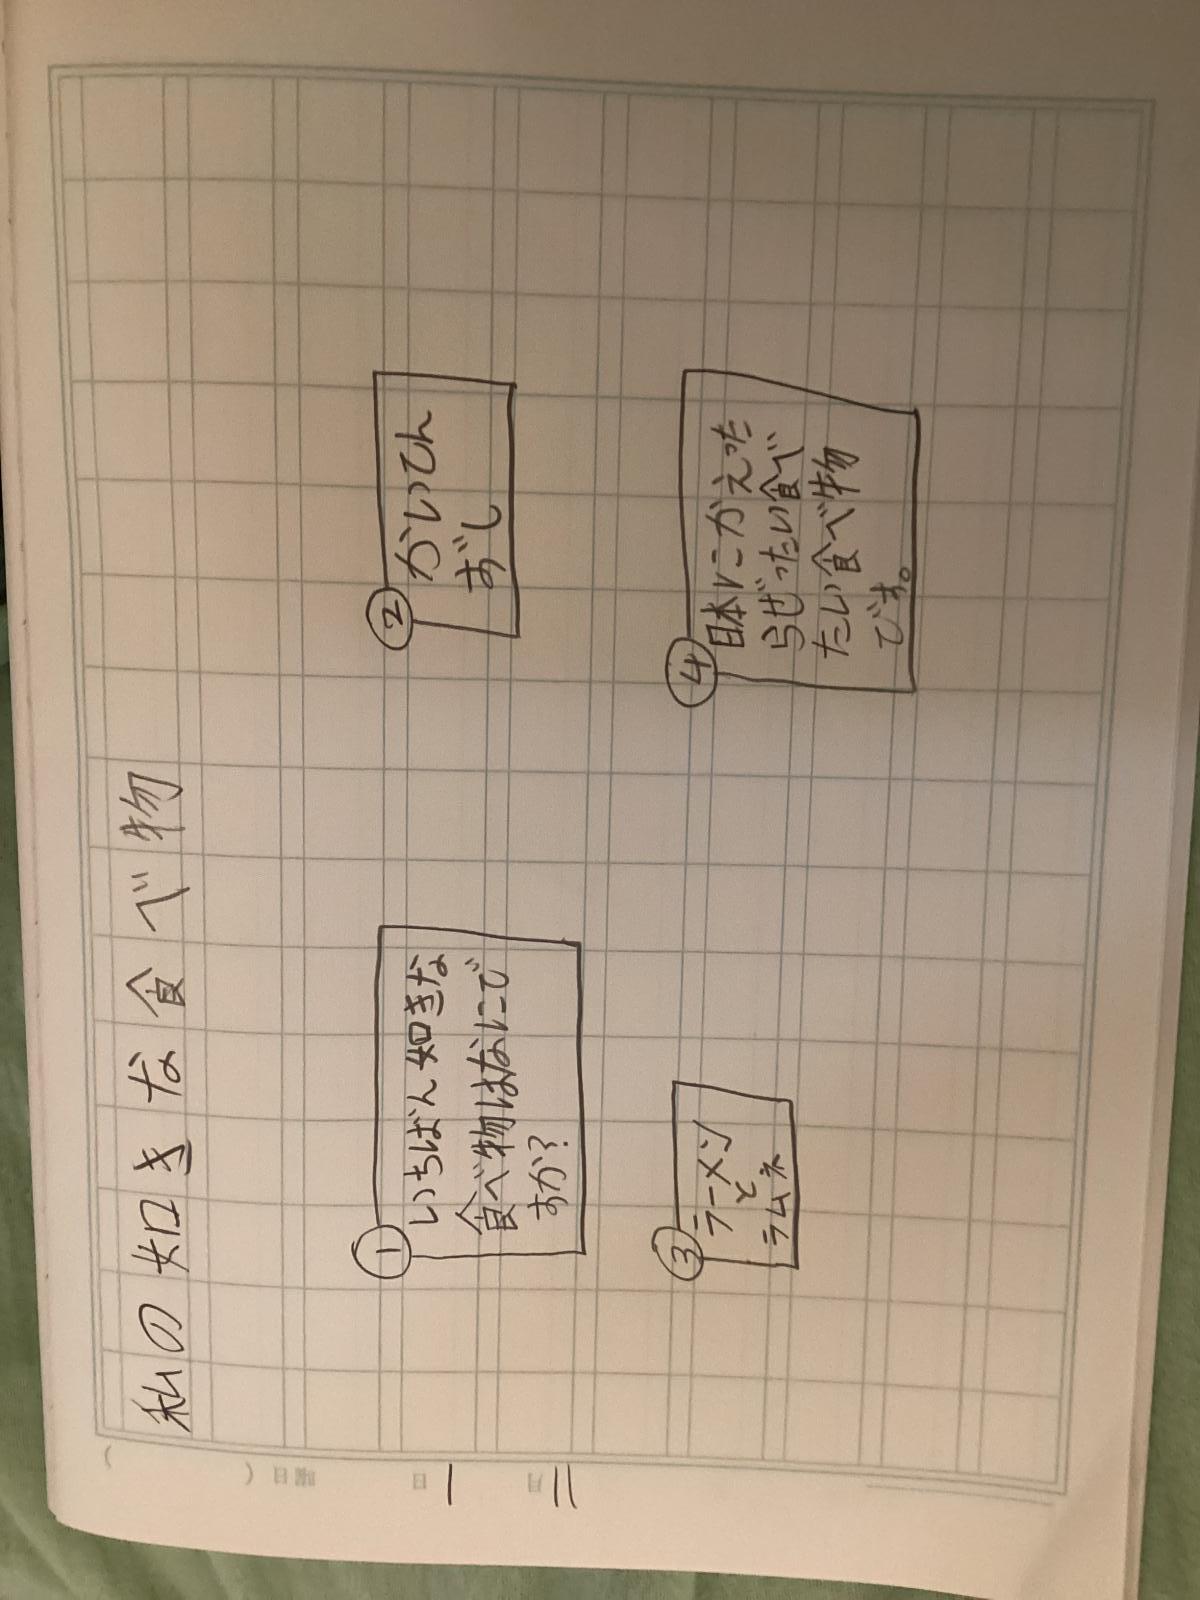 私の好きな食べ物
①
いちばん好きな
食べ物はなにで
すか?
②
かいてん
ずし
③
ラーメン
と
ラムネ
④
日本にかえった
らぜったい食べ
たい食べ物
です。
11月
1日
曜日( )